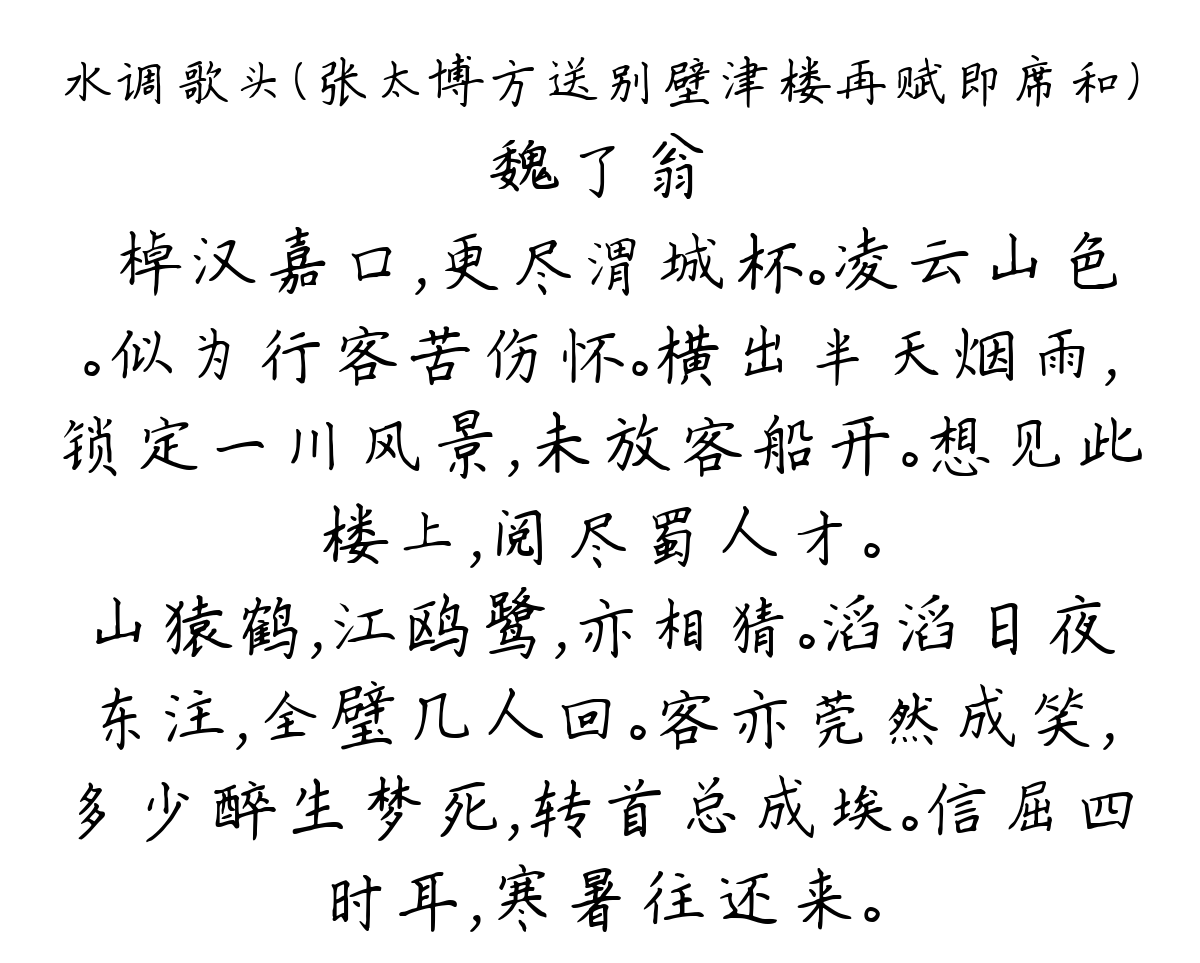 水调歌头(张太博方送别壁津楼再赋即席和)
魏了翁
棹汉嘉口,更尽渭城杯。凌云山色
。似为行客苦伤怀。横出半天烟雨,
锁定一川风景,未放客船开。想见此
楼上,阅尽蜀人才。
山猿鹤,江鸥鹭,亦相猜。滔滔日夜
东注,全璧几人回。客亦莞然成笑,
多少醉生梦死,转首总成埃。信屈四
时耳,寒暑往还来。